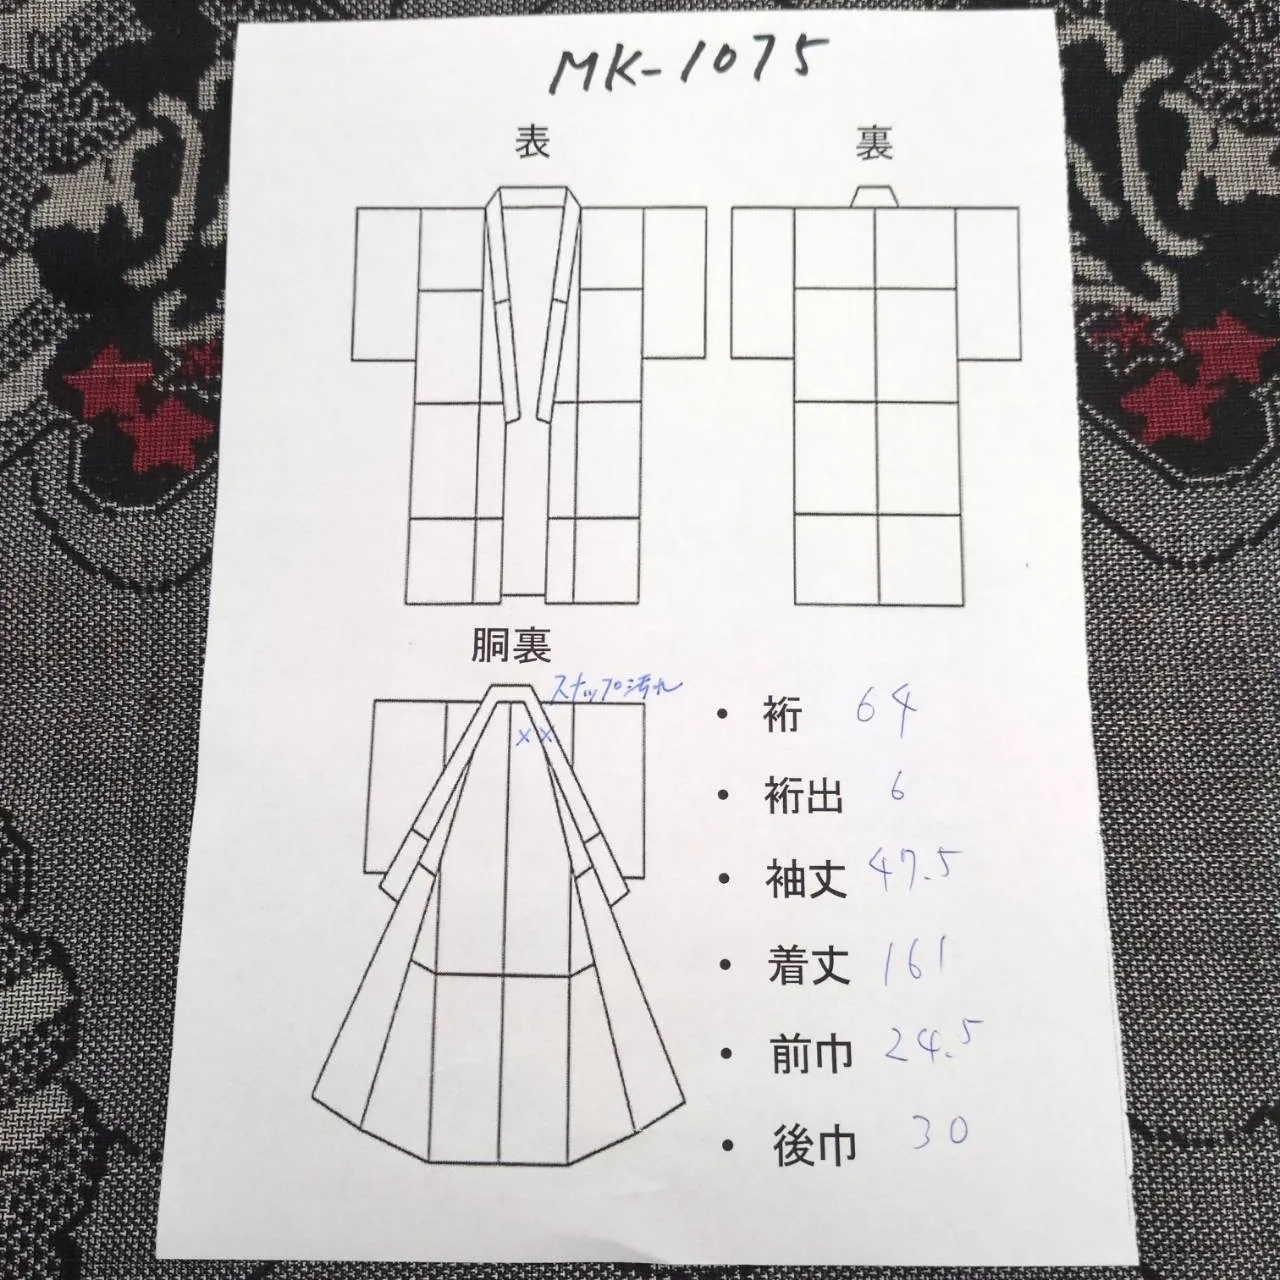 MK-1075
表
裏
胴裏
スナップ汚れ
××
・裄 64
・裄出 6
・袖丈 47.5
・着丈 161
・前巾 24.5
・後巾 30